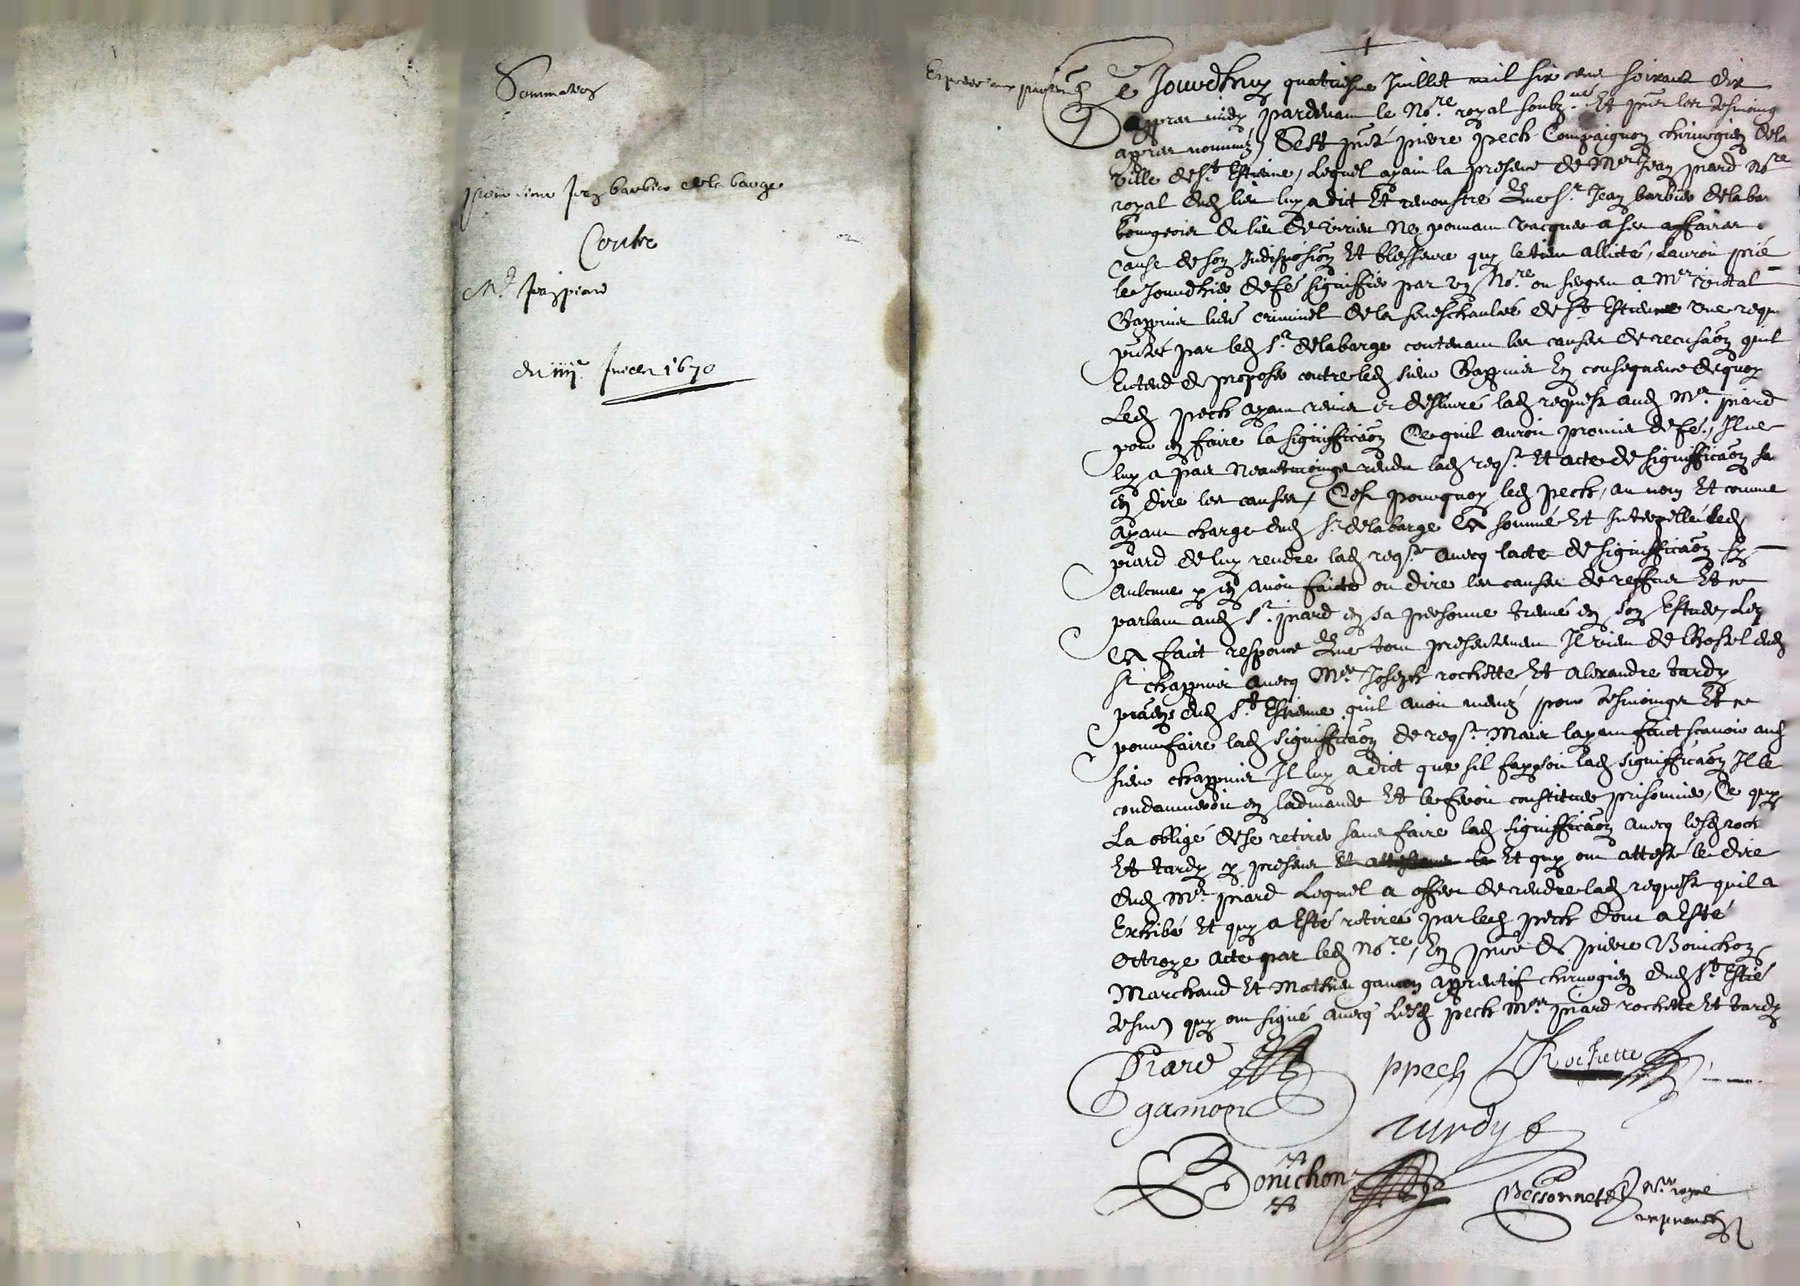 Sommation
pour sieur Jean barbier de la barge
Contre
Me Jean piard
du iiiie Juillet 1670
Expedié aux parties
Ce Jourdhuy quatriesme Juillet mil six cens soixante dix
appres midy pardevant le Nore royal soubzné Et pnts les tesmoings
appres nommés, Sest pnté pierre pech Compaignon chirurgien de la
ville de St Estienne, Lequel ayant la presence de Mre Jean piard Nore
royal dud lieu luy a dict Et remonstré Que Sr Jean barbier de la bar
bourgeois du lieu de virieu Ne pouvant vacquer a ses affaires
Cause de son Indisposion Et blesseure quy le tient allicté, Lauroit prié
le Jourdhier de fe signiffier par un Nore ou sergent a Mre vital
Chappuis lieut criminel de la seneschaulcée de St Estienne une requ
pntée par led Sr delabarge contenant les causes de recusaon quil
Entend de proposer contre led sieur Chappuis En consequence de quoy
Led pech ayant remis et deslivré lad requeste aud Mre piard
pour en faire la signifficaon Ce quil auroit promis de fe, Il ne
luy a pas Neantmoings rendu lad reqte Et acte de signifficaon sa
en dire les causes, Cest pourquoy led pech, au nom Et comme
ayant charge dud Sr delabarge A sommé Et Interpellé led
piard de luy rendre lad reqte avecq lacte de signifficaon sy
aulcune y en avoit faicte ou dire les causes de reffus Et ce
parlant aud Sr piard en sa personne treuvé en son Estude, Leq
A faict response Que tout presentement Il vient de lhostel dud
Sr chappuis avecq Mes Joseph rochette Et alexandre tardy
praens dud St Estienne quil avoit menés pour tesmoings Et ce
pour faire lad signifficaon de reqte Mais layant faict scavoir aud
sieur chappuis Il luy a dict que sil faysoit lad signifficaon Il le
condamneroit en ladmande Et le feroit constituer prisonnier, Ce quy
La obligé de se retirer sans faire lad signifficaon avecq lesd roch
Et tardy y presens Et quy ont attesté le dire
dud Mre piard Lequel a offert de rendre lad requeste quil a
Exhibé Et quy a Esté retirée par led pech Dont a Esté
octroyé acte par led Nore, En pnce de pierre Bonichon
Marchand Et Mathieu gamon apprentif chirurgien dud St Estie
tesms quy ont signé avecq Lesd pech Mes piard rochette Et tardy
Piard
ppech
Rochette
gamon
Tardy
Bonichon
Bessonnet Nre royal